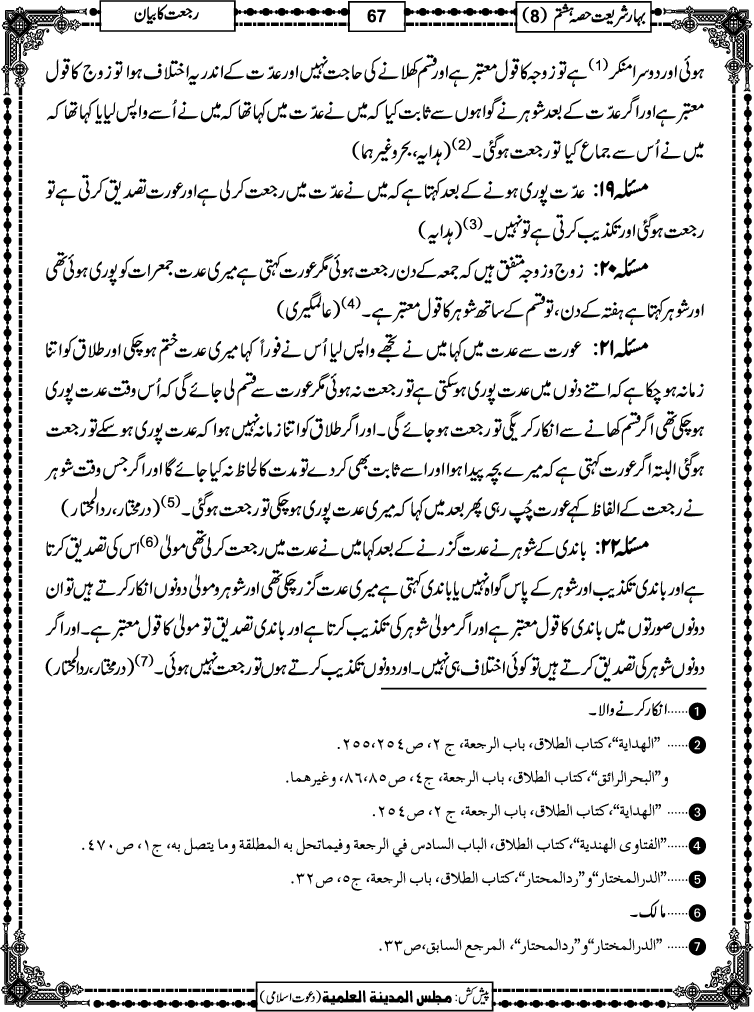 بہارِ شریعت حصہ ہشتم (8)
67
رجعت کا بیان
ہوئی اور دوسرا منکر (1) ہے تو زوجہ کا قول معتبر ہے اور قسم کھلانے کی حاجت نہیں اور عدّت کے اندر یہ اختلاف ہوا تو زوج کا قول
معتبر ہے اور اگر عدّت کے بعد شوہر نے گواہوں سے ثابت کیا کہ میں نے عدّت میں کہا تھا کہ میں نے اُسے واپس لیا یا کہا تھا کہ
میں نے اُس سے جماع کیا تو رجعت ہوگئی۔ (2) (ہدایہ، بحر وغیرہما)
مسئلہ ۱۹: عدّت پوری ہونے کے بعد کہتا ہے کہ میں نے عدّت میں رجعت کر لی ہے اور عورت تصدیق کرتی ہے تو
رجعت ہوگئی اور تکذیب کرتی ہے تو نہیں۔ (3) (ہدایہ)
مسئلہ ۲۰: زوج و زوجہ متفق ہیں کہ جمعہ کے دن رجعت ہوئی مگر عورت کہتی ہے میری عدت جمعرات کو پوری ہوئی تھی
اور شوہر کہتا ہے ہفتہ کے دن، تو قسم کے ساتھ شوہر کا قول معتبر ہے۔ (4) (عالمگیری)
مسئلہ ۲۱: عورت سے عدت میں کہا میں نے تجھے واپس لیا اُس نے فوراً کہا میری عدت ختم ہوچکی اور طلاق کو اتنا
زمانہ ہو چکا ہے کہ اتنے دنوں میں عدت پوری ہوسکتی ہے تو رجعت نہ ہوئی مگر عورت سے قسم لی جائے گی کہ اُس وقت عدت پوری
ہو چکی تھی اگر قسم کھانے سے انکار کریگی تو رجعت ہو جائے گی۔ اور اگر طلاق کو اتنا زمانہ نہیں ہوا کہ عدت پوری ہو سکے تو رجعت
ہوگئی البتہ اگر عورت کہتی ہے کہ میرے بچہ پیدا ہوا اور اسے ثابت بھی کر دے تو مدت کا لحاظ نہ کیا جائے گا اور اگر جس وقت شوہر
نے رجعت کے الفاظ کہے عورت چُپ رہی پھر بعد میں کہا کہ میری عدت پوری ہوچکی تو رجعت ہوگئی۔ (5) (درمختار، ردالمحتار)
مسئلہ ۲۲: باندی کے شوہر نے عدت گزرنے کے بعد کہا میں نے عدت میں رجعت کر لی تھی مولیٰ (6) اس کی تصدیق کرتا
ہے اور باندی تکذیب اور شوہر کے پاس گواہ نہیں یا باندی کہتی ہے میری عدت گزر چکی تھی اور شوہر و مولیٰ دونوں انکار کرتے ہیں تو ان
دونوں صورتوں میں باندی کا قول معتبر ہے اور اگر مولیٰ شوہر کی تکذیب کرتا ہے اور باندی تصدیق تو مولیٰ کا قول معتبر ہے۔ اور اگر
دونوں شوہر کی تصدیق کرتے ہیں تو کوئی اختلاف ہی نہیں۔ اور دونوں تکذیب کرتے ہوں تو رجعت نہیں ہوئی۔ (7) (درمختار، ردالمحتار)
1 ......انکار کرنے والا۔
2 ...... ”الهداية“، كتاب الطلاق، باب الرجعة، ج ٢، ص ٢٥٤، ٢٥٥.
و”البحرالرائق“، كتاب الطلاق، باب الرجعة، ج٤، ص٨٥، ٨٦، وغيرهما.
3 ...... ”الهداية“، كتاب الطلاق، باب الرجعة، ج ٢، ص ٢٥٤.
4 ......”الفتاوى الهندية“، كتاب الطلاق، الباب السادس في الرجعة وفيماتحل به المطلقة وما يتصل به، ج١، ص ٤٧٠.
5 ......”الدرالمختار“و”ردالمحتار“، كتاب الطلاق، باب الرجعة، ج٥، ص٣٢.
6 ......مالک۔
7 ...... ”الدرالمختار“و”ردالمحتار“، المرجع السابق، ص٣٣.
پیش کش: مجلس المدينة العلمية (دعوت اسلامی)